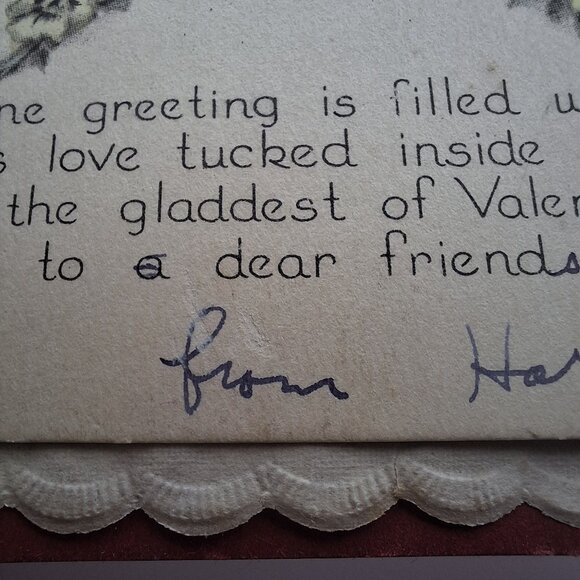 ne greeting is filled w
s love tucked inside
the gladdest of Valen
to a dear friends
from Har